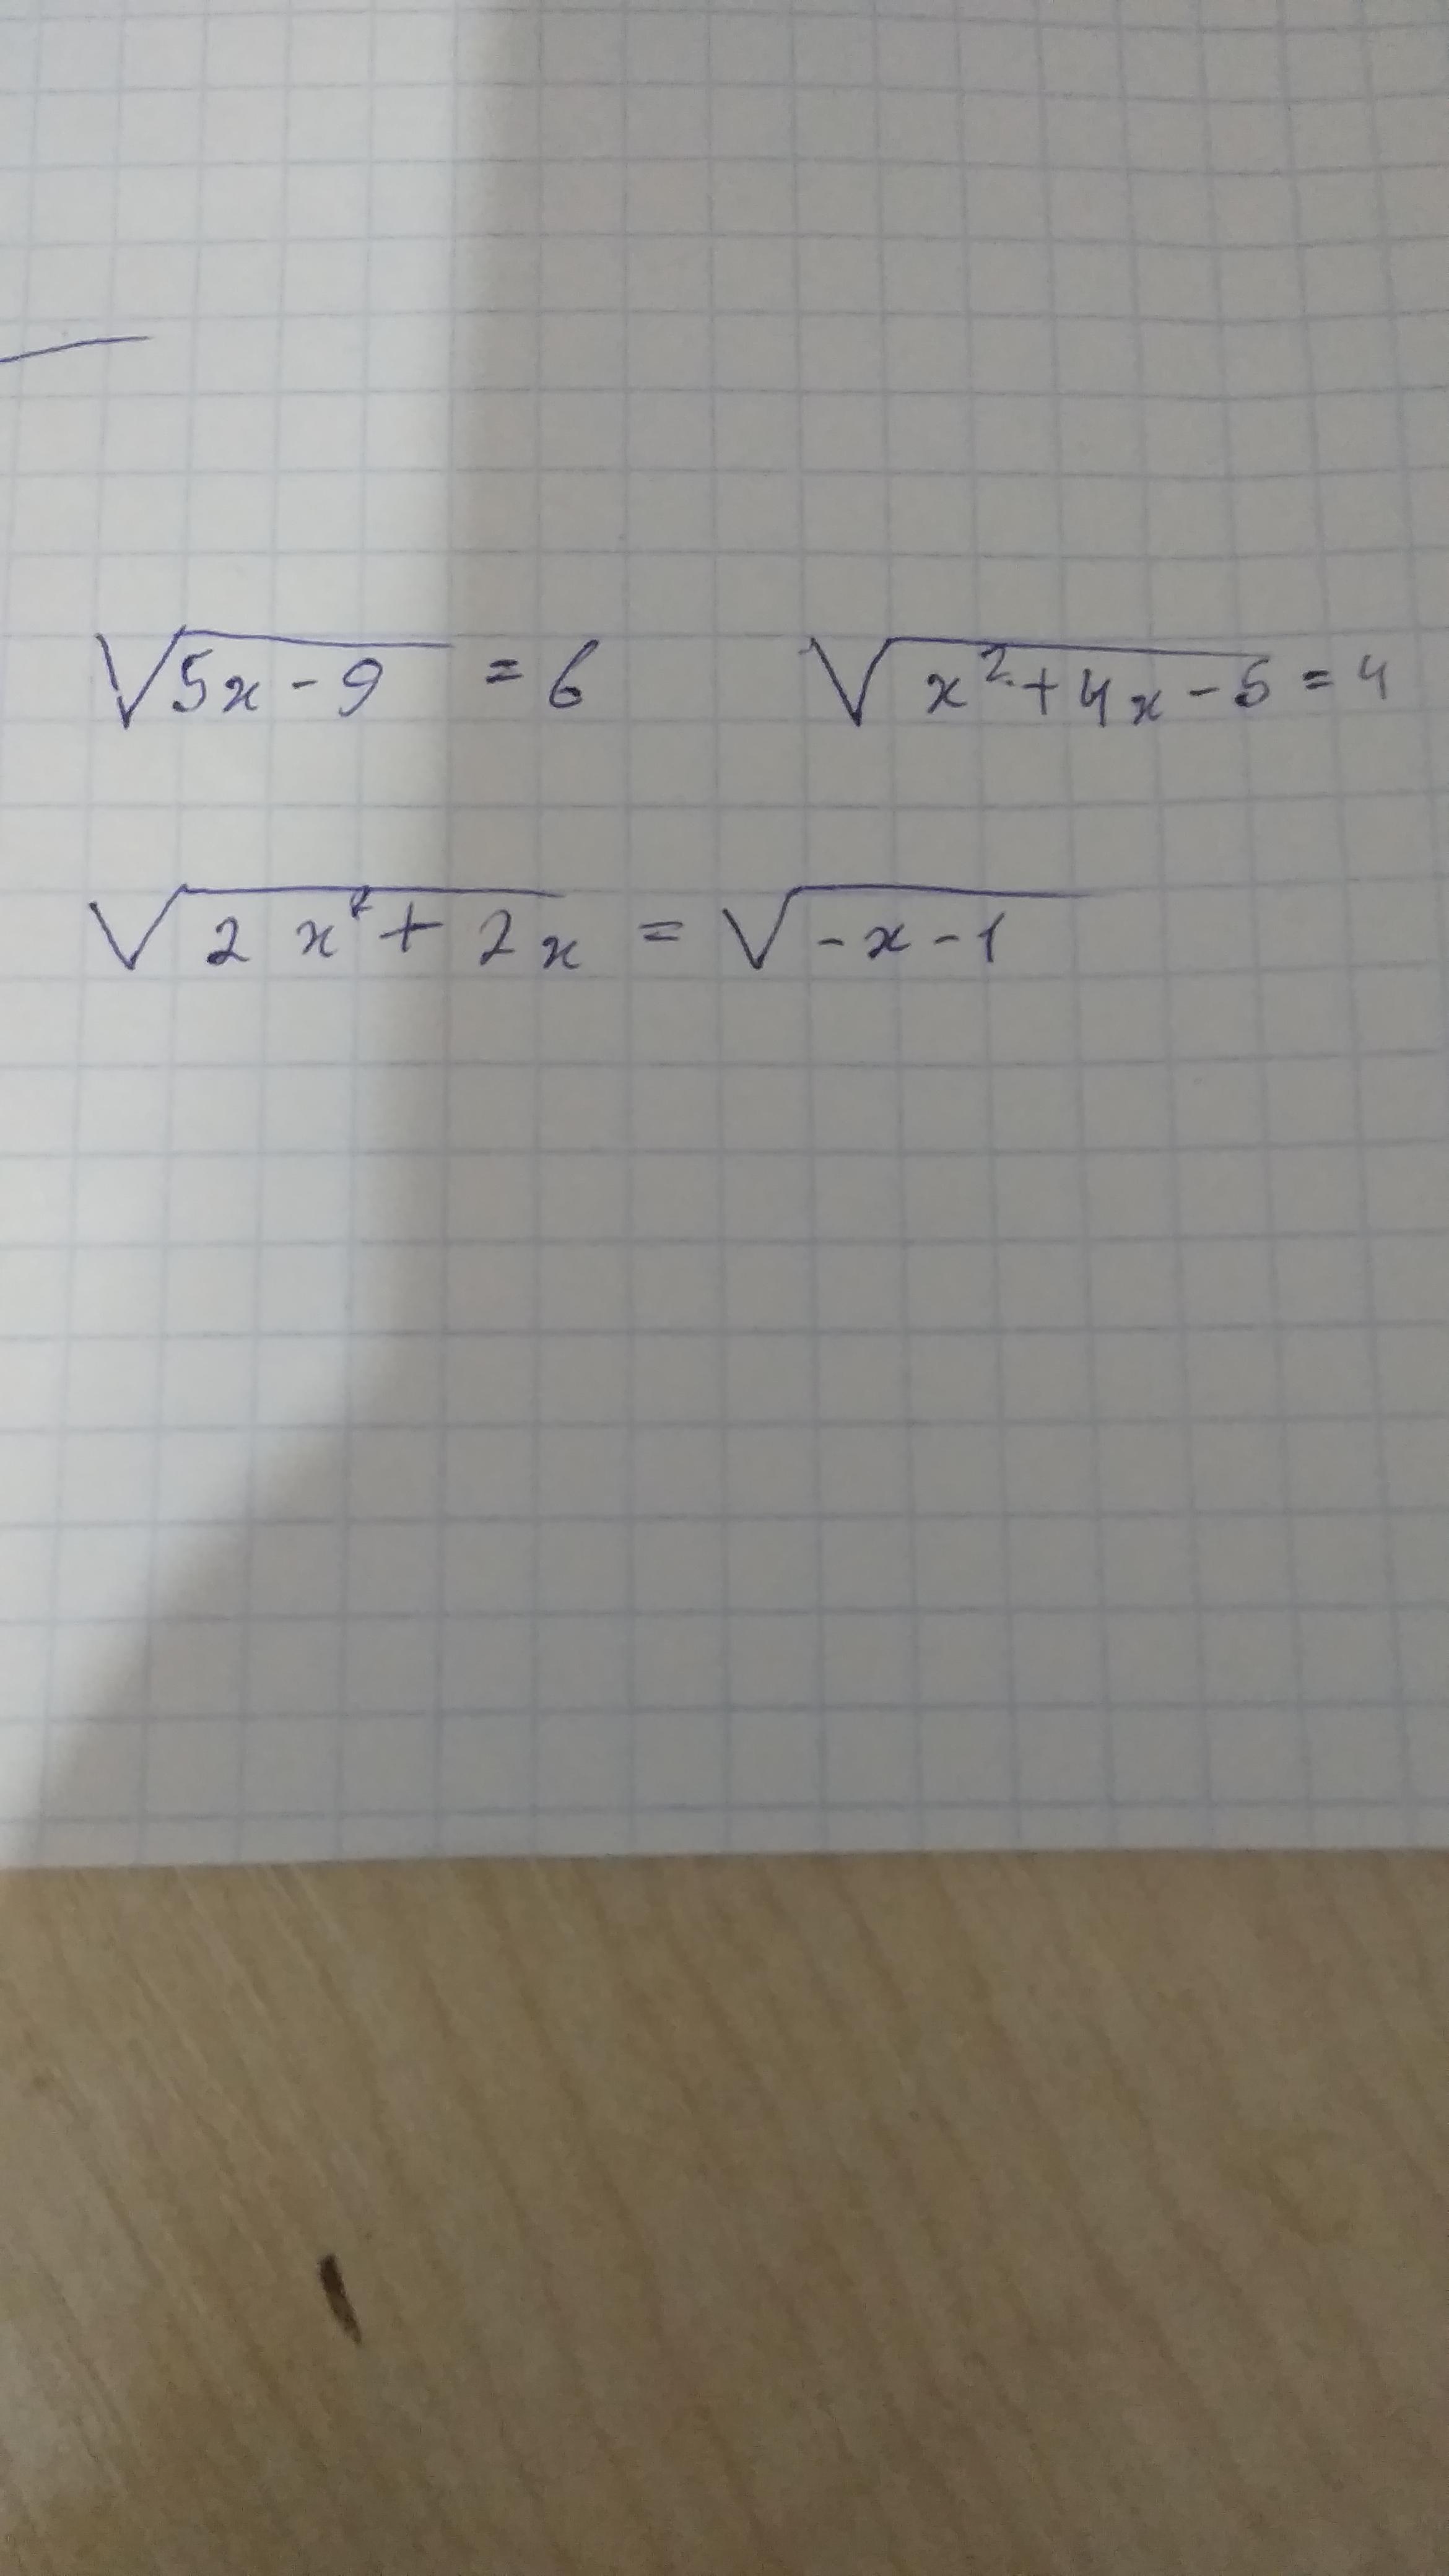 √5x - 9 = 6 √x² + 4x - 5 = 4
√2x² + 2x = √-x - 1